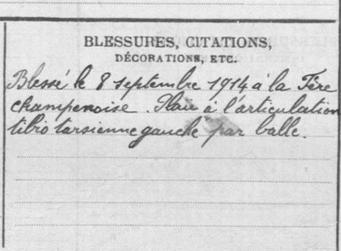 BLESSURES, CITATIONS,
DÉCORATIONS, ETC.
Blessé le 8 septembre 1914 à la Fère
champenoise. Plaie à l'articulation
tibio tarsienne gauche par balle.